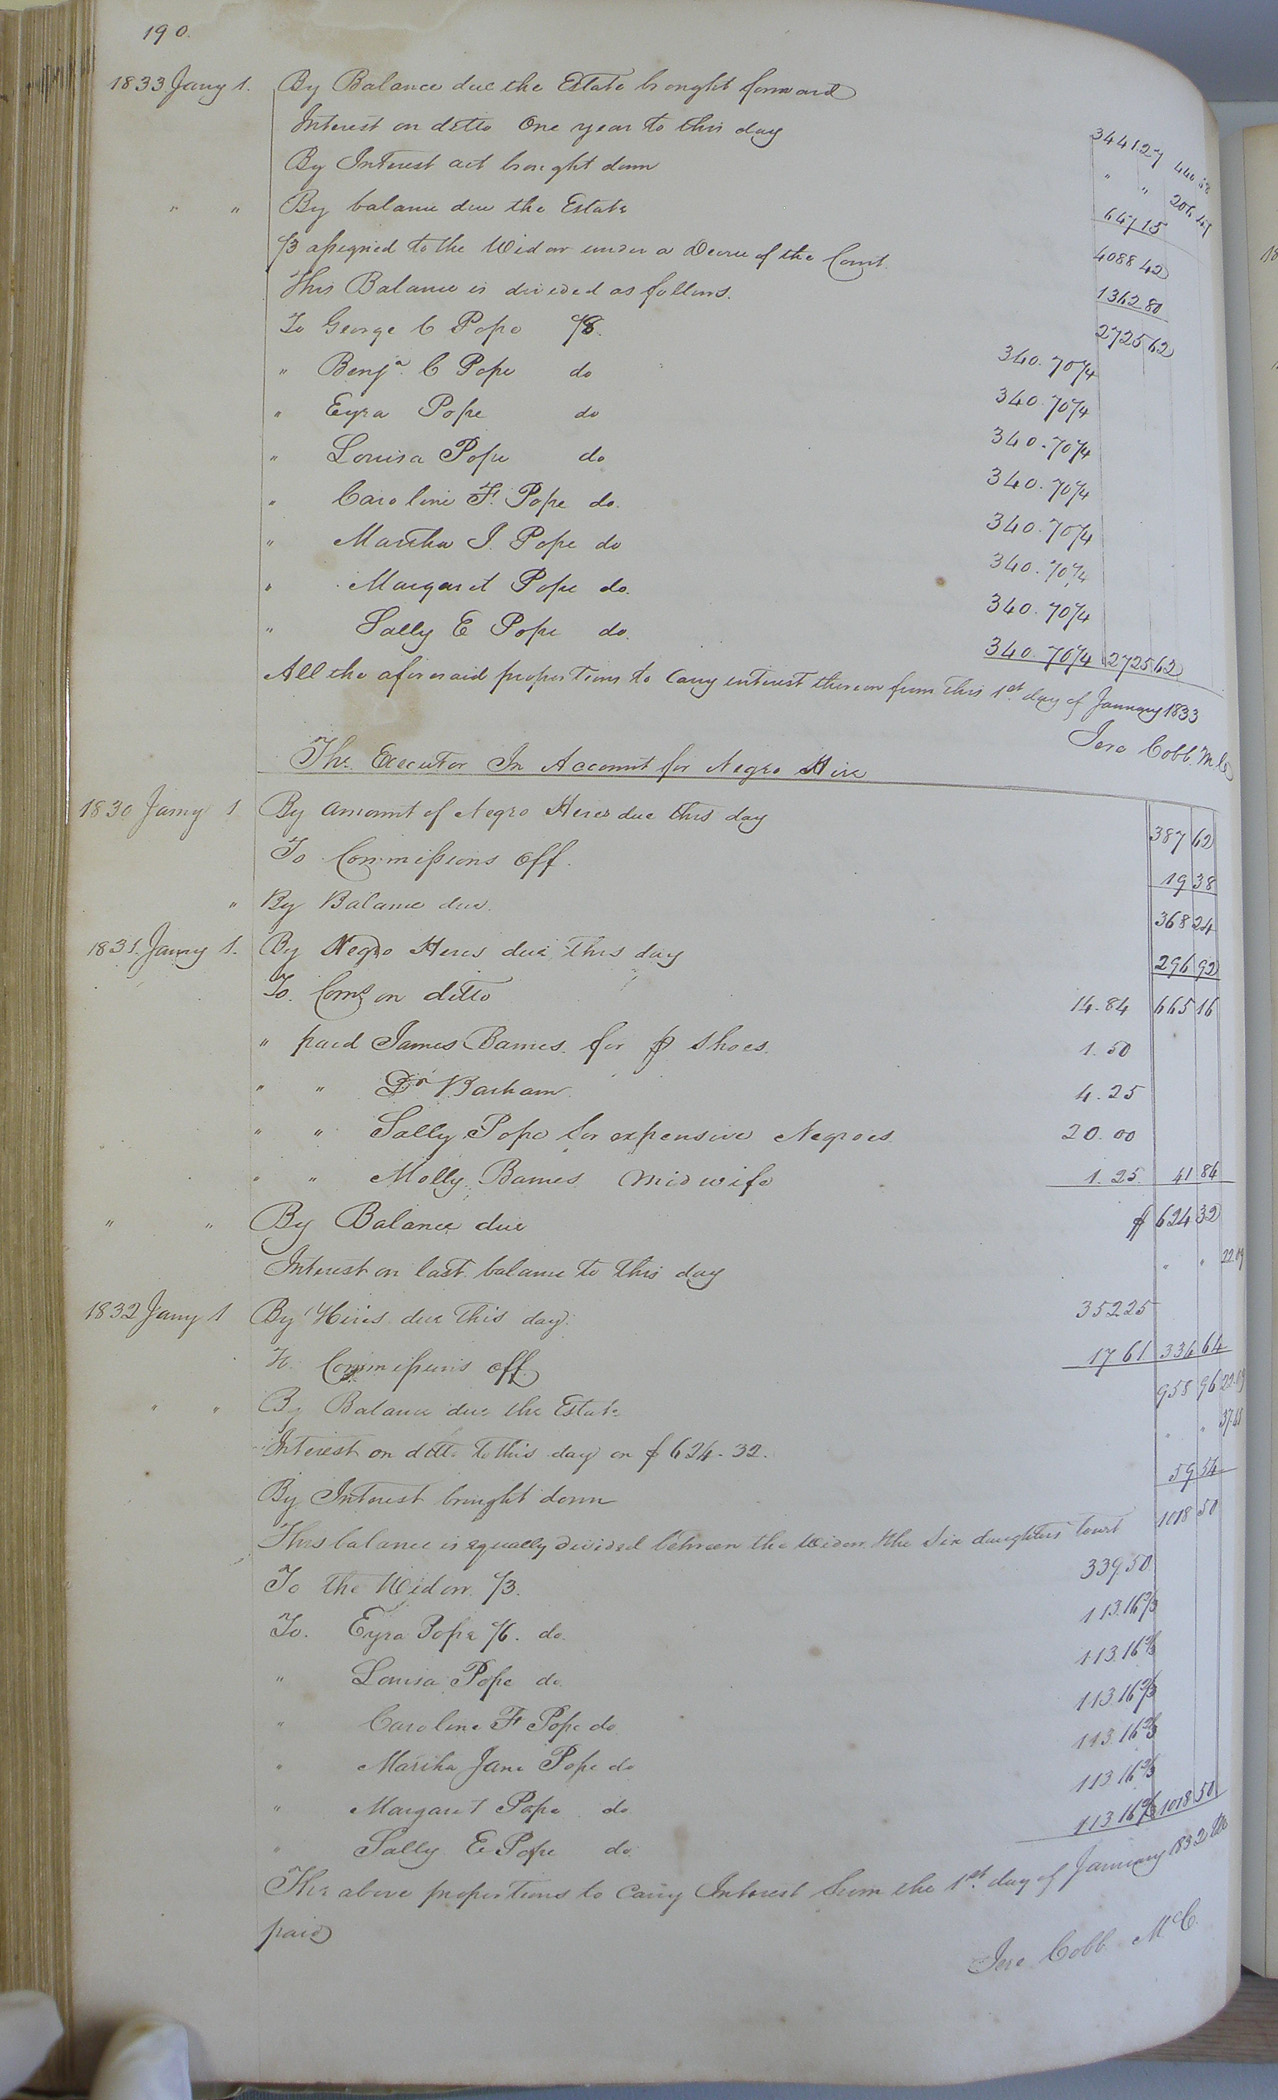 190.
1833 Jany 1. By Balance due the Estate brought forward 3441.27 440 68
Interest on ditto One year to this day " " 206.47
By Interest act brought down 647 15
" " By balance due the Estate 4088 42
1/3 assigned to the Widow under a Decree of the Court 1362 80
This Balance is divided as follows. 2725 62
To George C Pope 1/8. 340.70 1/4
" Benja. C Pope do 340.70 1/4
" Eyra Pope do 340.70 1/4
" Louisa Pope do 340.70 1/4
" Caroline F. Pope do. 340.70 1/4
" Martha J. Pope do 340.70 1/4
" Margaret Pope do. 340.70 1/4
" Sally E Pope do. 340.70 1/4 2725 62
All the aforesaid proportions to carry interest thereon from this 1st day of January 1833
Jere Cobb. M.C.
The Executor In Account for Negro Hire
1830 Jany 1 By amount of Negro Hires due this day 387 62
To Commissions off. 19 38
" By Balance due. 368 24
1831. Jany 1. By Negro Hires due this day 296 92
To. Coms on ditto 14.84 665 16
" paid James Barnes. for pr Shoes. 1.50
" " Dr Barham 4.25
" " Sally Pope for expensive Negroes 20.00
" " Molly Barnes Midwife 1.25 41 84
" " By Balance due $ 624 32
Interest on last balance to this day " " 22.09
1832 Jany 1 By Hires due this day. 352 25
To Commissions off 17 61 334 64
" " By Balance due the Estate 958 96 22.09
Interest on ditto to this day on $624.32. " " 37.45
By Interest brought down 59 54
This balance is equally divided between the Widow & the Six daughters to wit 1018 50
To the Widow 1/3. 339.50
To. Eyra Pope 1/6. do. 113.16 2/3
" Louisa Pope do. 113.16 2/3
" Caroline F Pope do 113.16 2/3
" Martha Jane Pope do 113.16 2/3
" Margaret Pope do 113.16 2/3
" Sally E Pope do 113.16 2/3 1018 50
The above proportions to carry Interest from the 1st day of January 1832 till
paid
Jere Cobb. M.C.